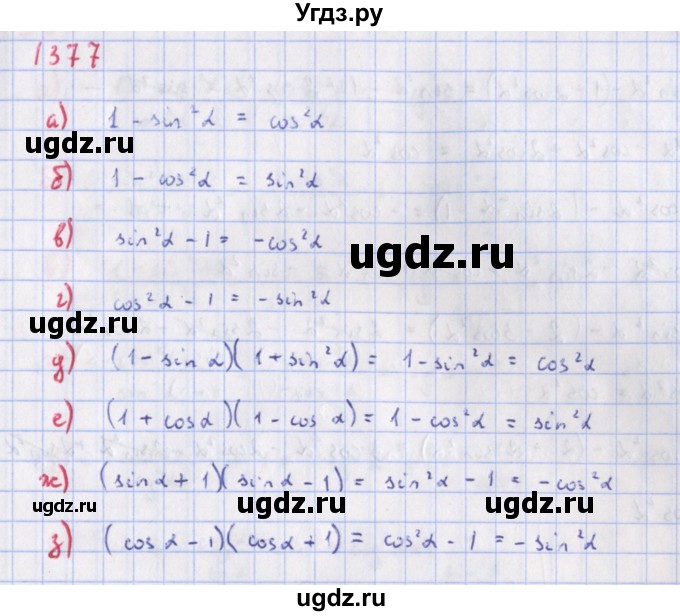 Угдз.ру
1377
а) 1 - sin²α = cos²α
ugdz.ru
б) 1 - cos²α = sin²α
в) sin²α - 1 = -cos²α
ugdz.ru
г) cos²α - 1 = -sin²α
ugdz.ru
д) (1 - sin α)(1 + sin²α) = 1 - sin²α = cos²α
е) (1 + cosα)(1 - cos α) = 1 - cos²α = sin²α
ж) (sinα + 1)(sinα - 1) = sin²α - 1 = -cos²α
ugdz.ru ugdz.ru
з) (cosα - 1)(cosα + 1) = cos²α - 1 = -sin²α
ugdz.ru